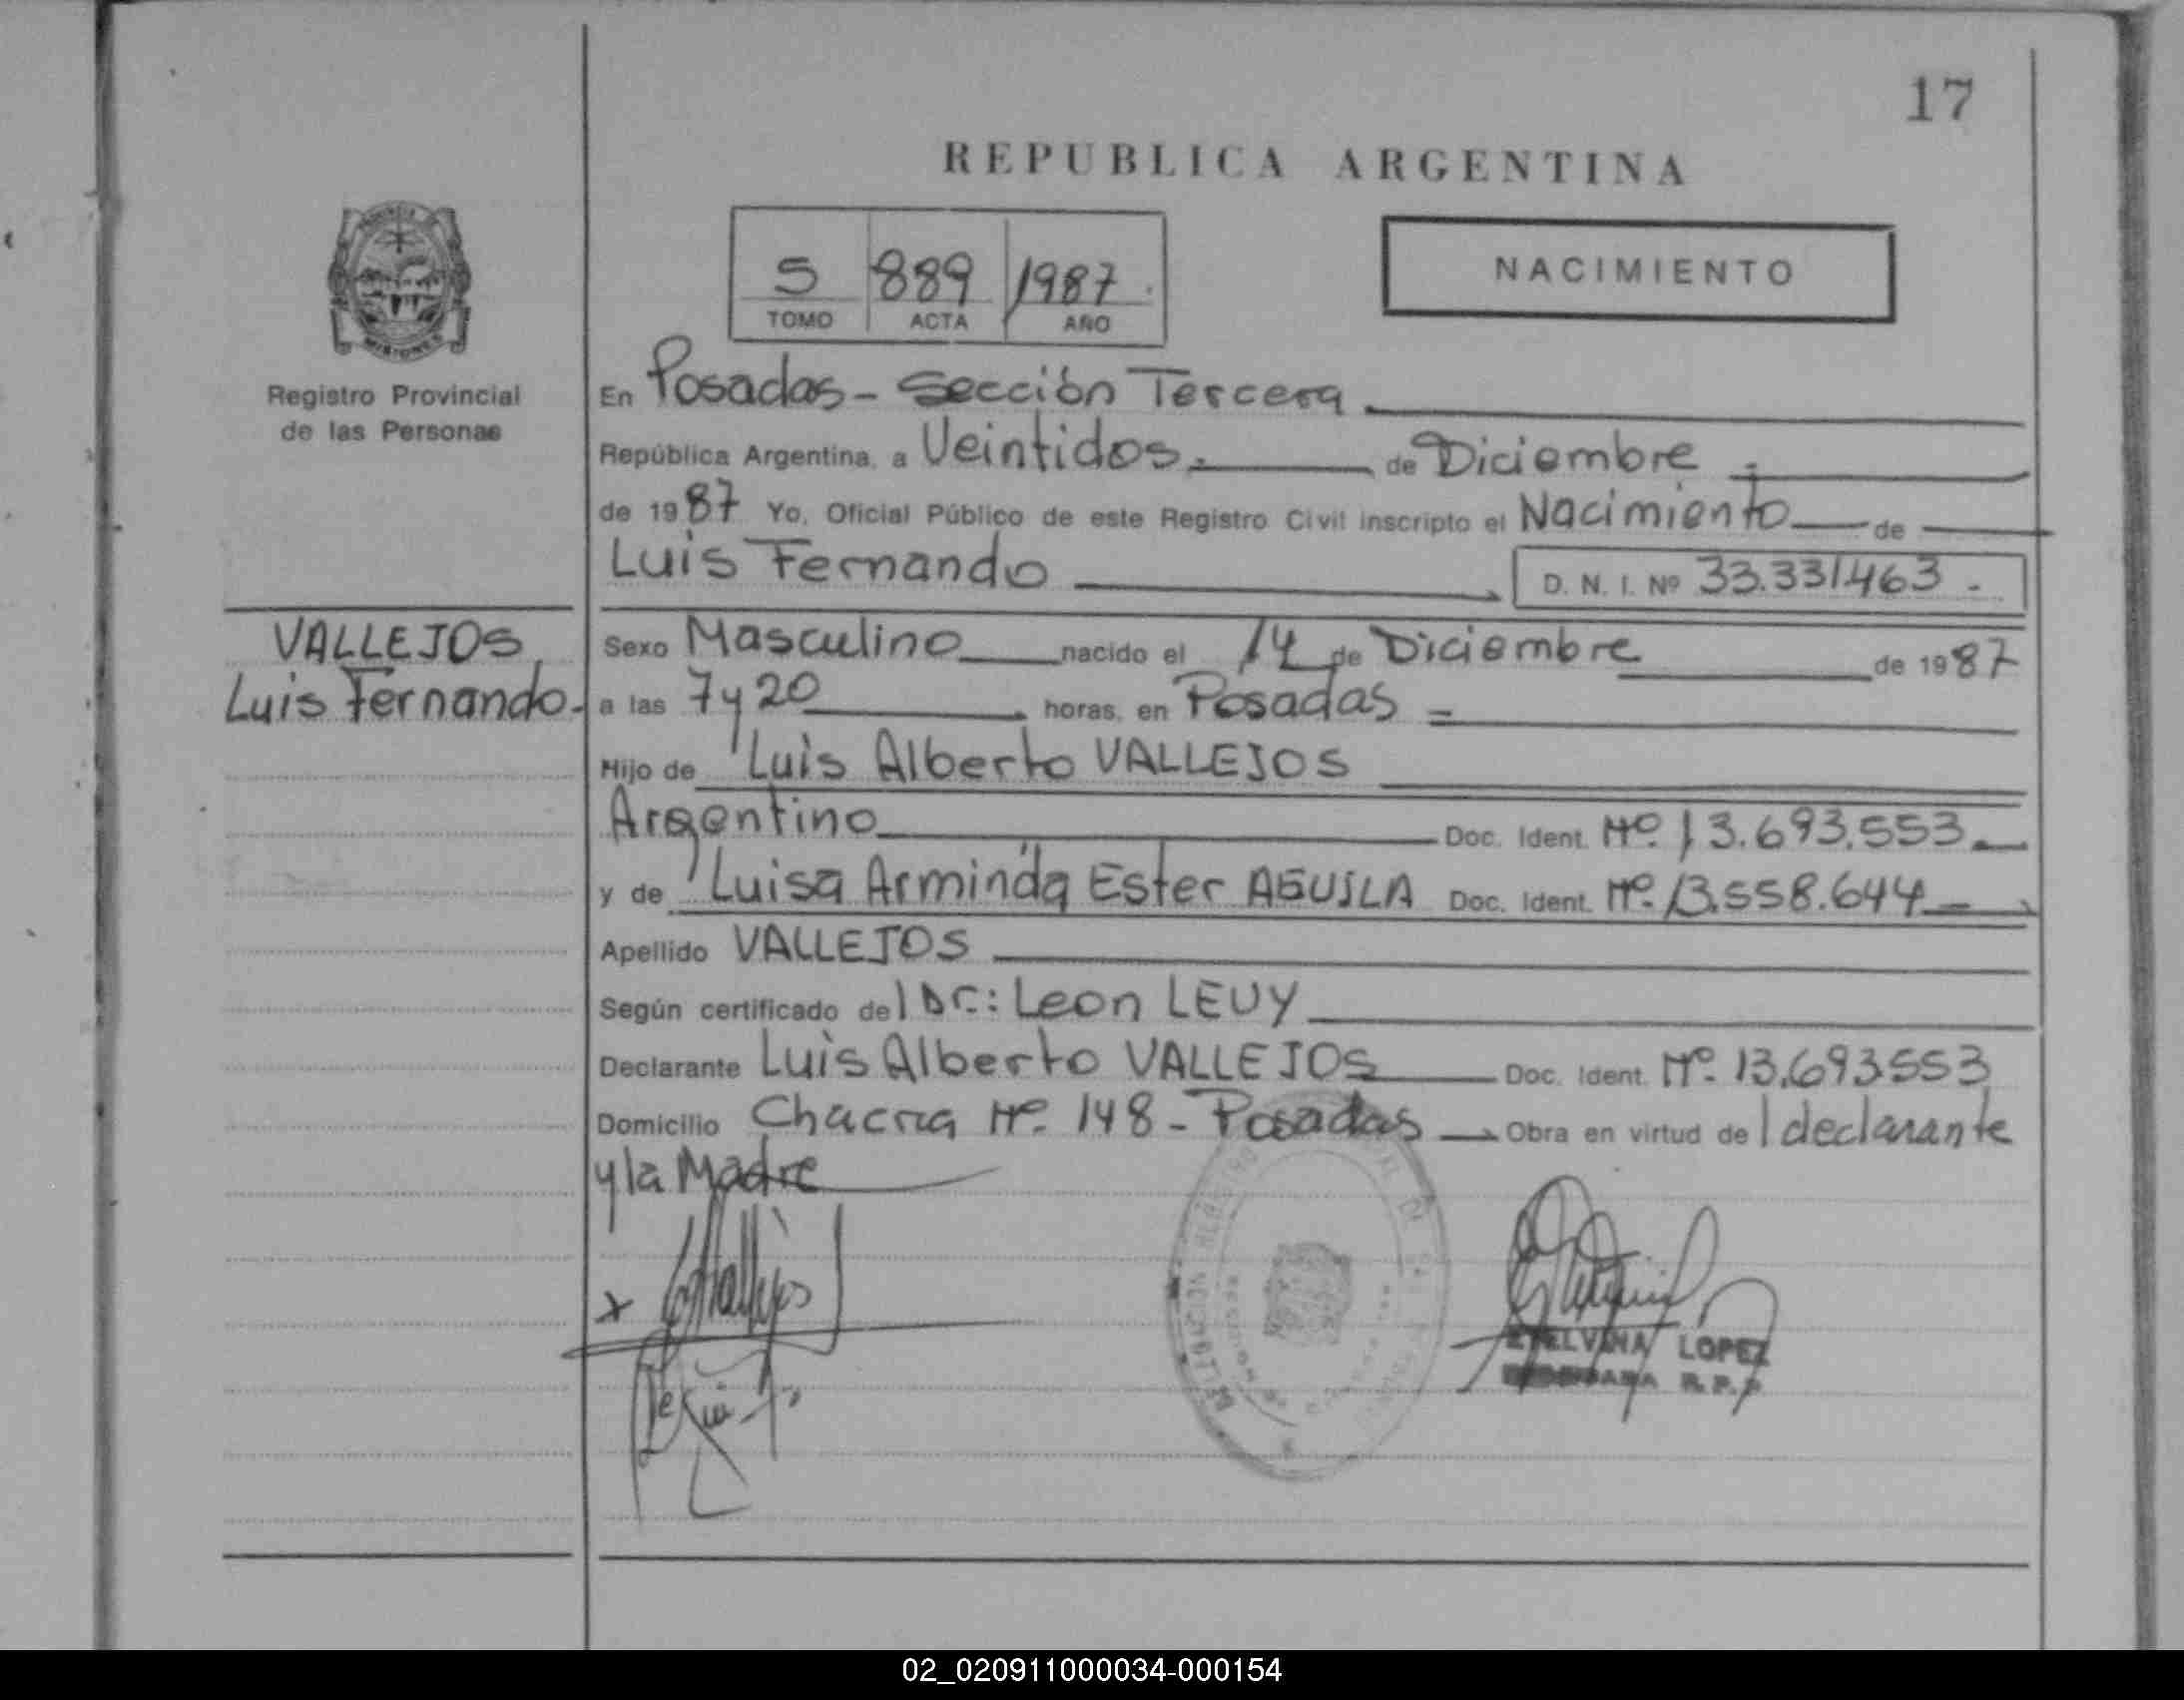 17
REPUBLICA ARGENTINA
5 889 1987
TOMO ACTA AÑO
NACIMIENTO
MISIONES
Registro Provincial
de las Personas
En Posadas - Sección Tercera
República Argentina, a Veintidos de Diciembre
de 1987 Yo, Oficial Público de este Registro Civil inscripto el Nacimiento de
Luis Fernando D. N. I. Nº 33.331.463 -
VALLEJOS
Luis Fernando.-
Sexo Masculino nacido el 14 de Diciembre de 1987
a las 7 y 20 horas, en Posadas
Hijo de Luis Alberto VALLEJOS
Argentino Doc. Ident. Nº. 13.693.553
y de Luisa Arminda Ester AGUILA Doc. Ident. Nº. 13.558.644
Apellido VALLEJOS
Según certificado del Dr.: Leon LEVY
Declarante Luis Alberto VALLEJOS Doc. Ident. Nº. 13.693.553
Domicilio Chacra Nº. 148 - Posadas Obra en virtud del declarante
y la Madre
LOPEZ
R. P. P
02_020911000034-000154